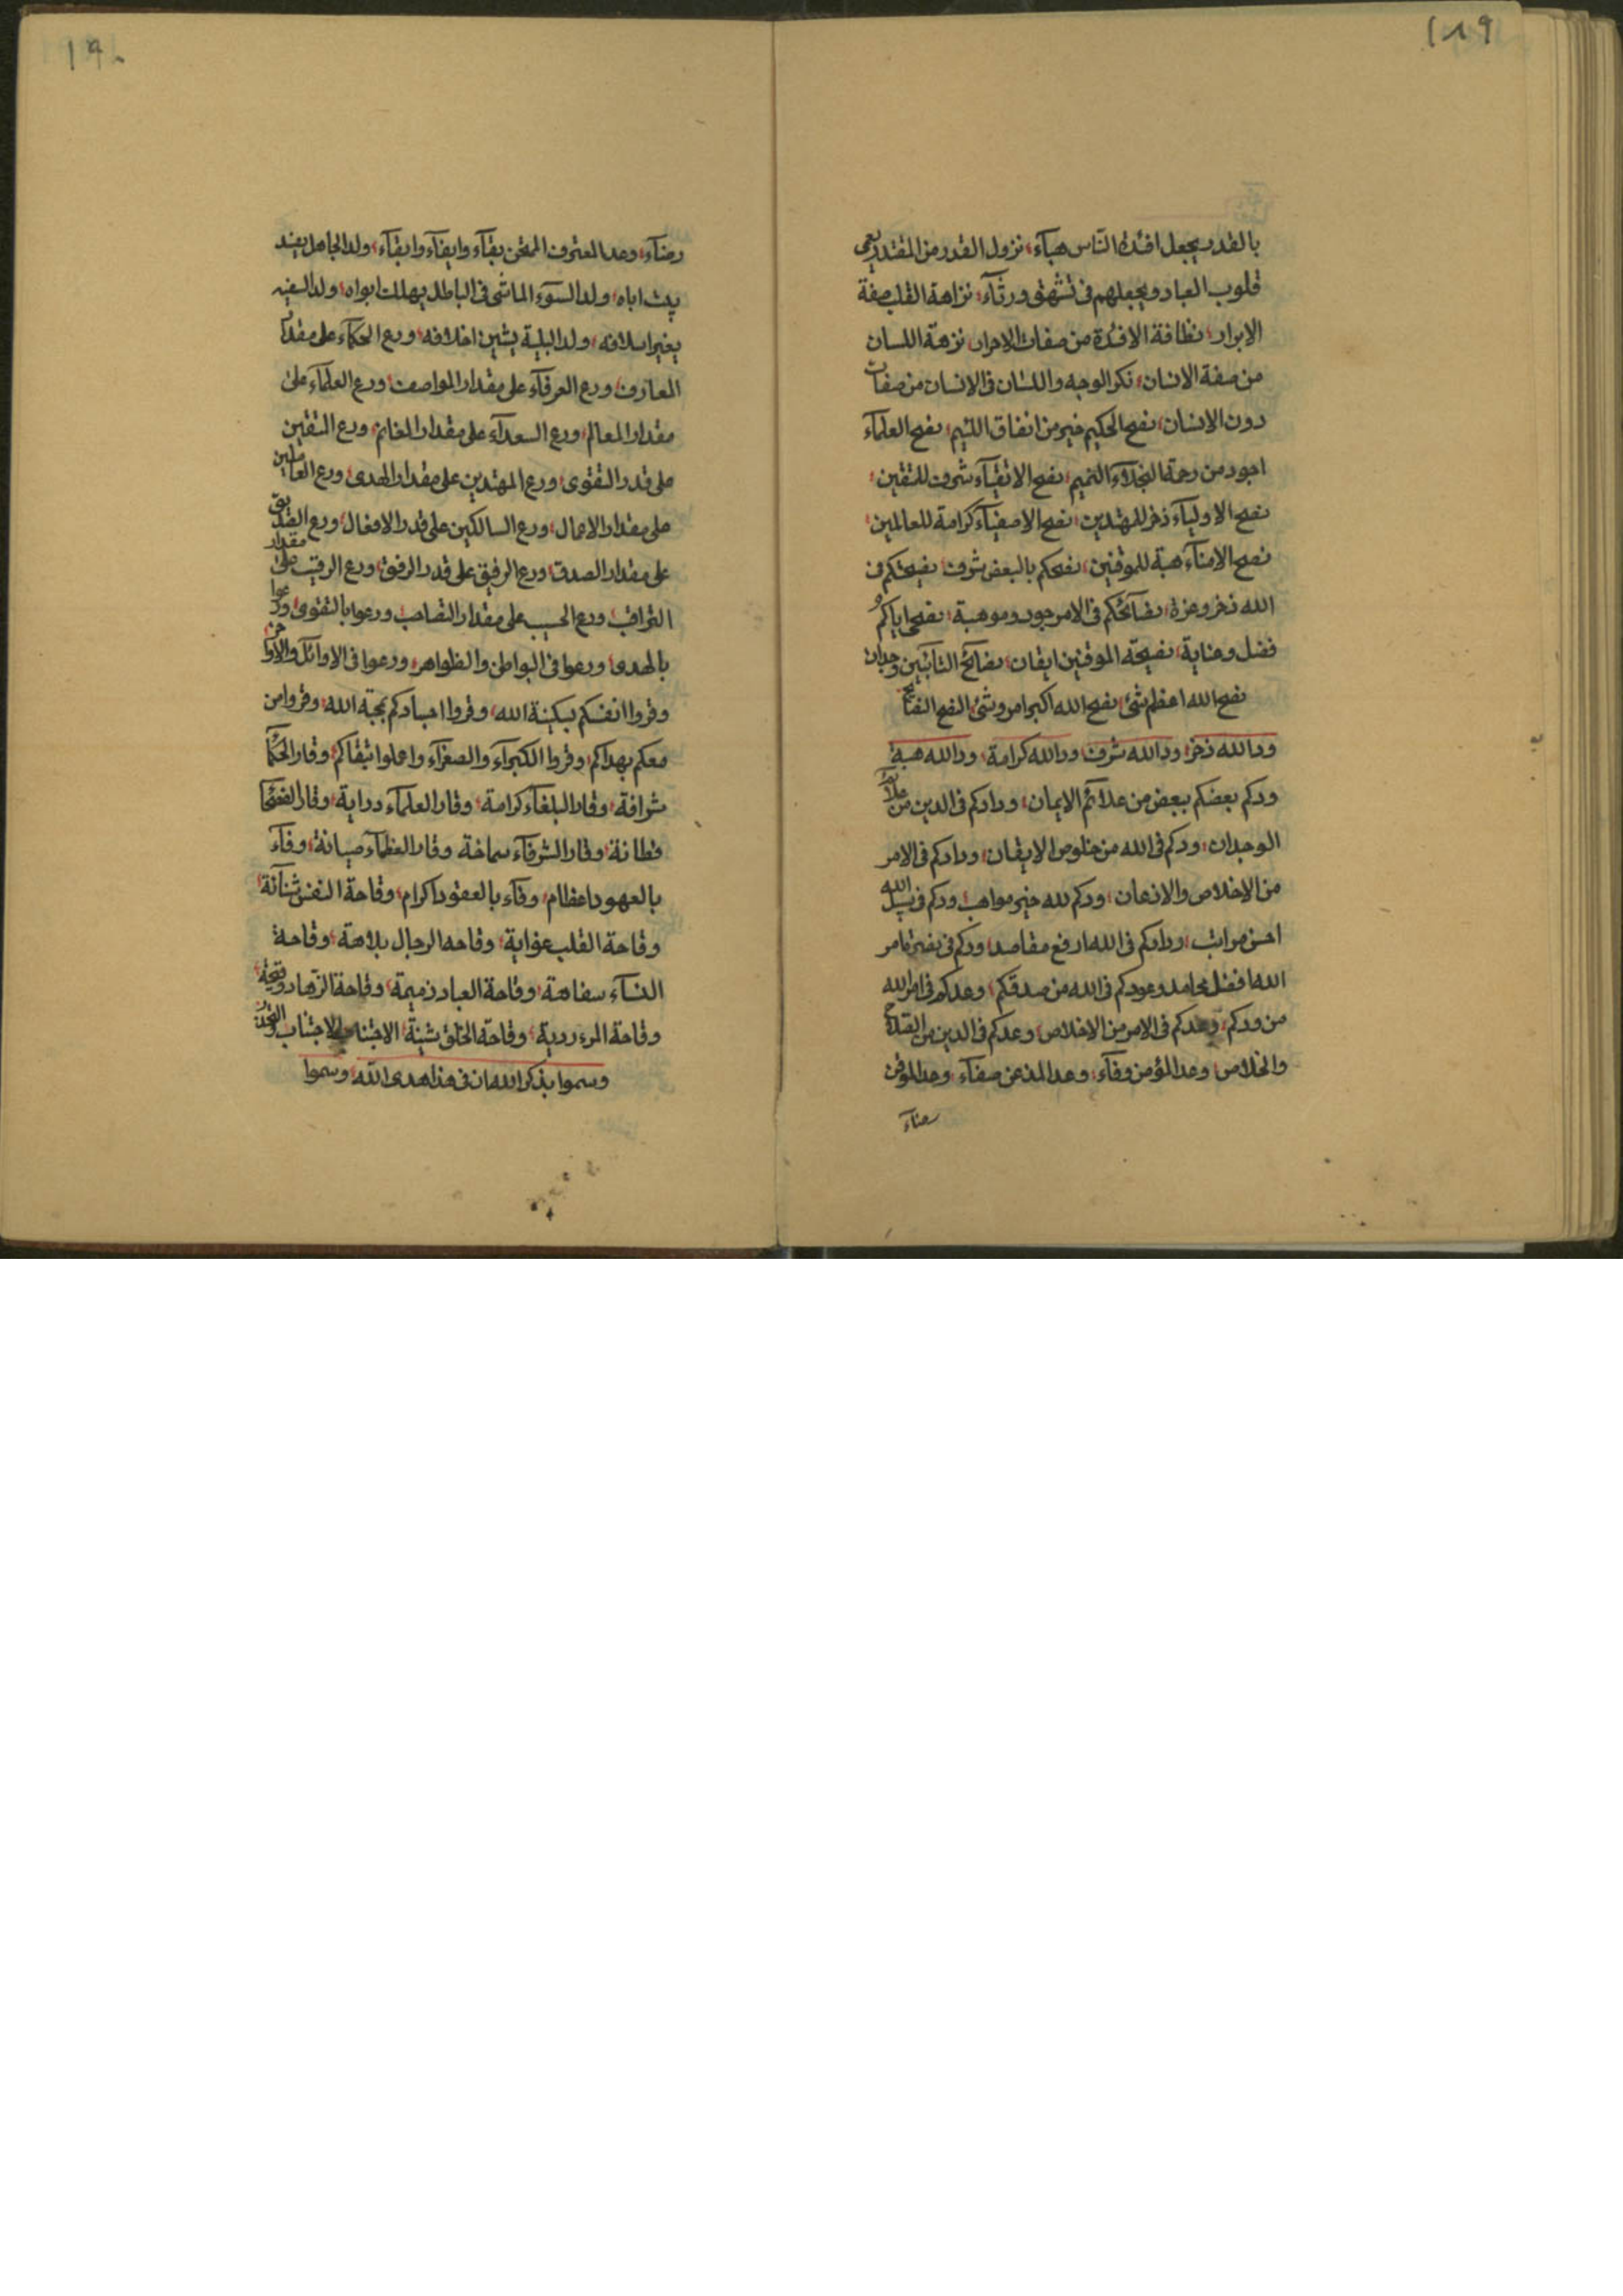 ١٨٩
بالقدر يجعل افئدة الناس هبآء، نزول القدر من المقتدر يعمى
قلوب العباد ويجعلهم فى تشهّق ورثآء، نزاهة القلب صفة
الابرار، نظافة الافئدة من صفات الاحرار، نزهة اللسان
من صفة الانسان، نكر الوجه واللسان فى الانسان من صفات
دون الانسان، نصح الحكيم خير من انفاق اللئيم، نصح العلمآء
اجود من رحمة البخلآء النميم، نصح الاتقيآء شرف للمتقين،
نصح الاوليآء ذخر للمهتدين، نصح الاصفيآء كرامة للعالمين،
نصح الامنآء هبة للموقنين، نصحكم بالبعض شرف، نصيحتكم فى
الله ذخر وعزة، نصآئحكم فى الامر جود وموهبة، نصحى اياكم
فضل وعناية، نصيحة الموقنين ايقان، نصائح التائبين وجدان
نصح الله اعظم شئ، نصح الله اكبر امر وشئ، النصح النصائح
ود الله ذخر، ود الله شرف، ود الله كرامة، ود الله هبة،
ودكم بعضكم ببعض من علائم الايمان، ودادكم فى الدين من علائم
الوجدان، ودكم فى الله من خلوص الايقان، ودادكم فى الامر
من الاخلاص والاذعان، ودكم لله خير مواهب، ودكم فى سبيل الله
احسن مراتب، ودادكم فى الله ارفع مقاصد، ودكم فى نصرة امر
الله افضل محامد، وعودكم فى الله من صدقكم، وعدكم فى امر الله
من ودكم، وعدكم فى الامر من الاخلاص، وعدكم فى الدين من
والخلاص، وعد المؤمن وفآء، وعد المذعن صفآء، وعد الموقن
رضآء
١٩٠
رضآء، وعد المعترف الممتحن بقآء وايفآء وابقآء، ولد الجاهل يفند
يرث اباه، ولد السوء الماشى فى الباطل يهلك ابواه، ولد السفيه
يغير اسلافه، ولد البلية يشين اخلافه، ورع الحكمآء على مقدار
المعارف، ورع العرفآء على مقدار المواصف، ورع العلمآء على
مقدار المعالم، ورع السعدآء على مقدار المغانم، ورع المتقين
على قدر التقوى، ورع المهتدين على مقدار الهدى، ورع العاملين
على مقدار الاعمال، ورع السالكين على قدر الافعال، ورع الصديق
على مقدار الصدق، ورع الرفيق على قدر الرفق، ورع الرقيب على مقدار
التراقب، ورع الحسيب على مقدار التصاحب، ورعوا بالتقوى، ورعوا
بالهدى، ورعوا فى البواطن والظواهر، ورعوا فى الاوائل والاواخر،
وقروا انفسكم بسكينة الله، وقروا اجسادكم بمحبة الله، وقروا من
معكم بهداكم، وقروا الكبرآء والصغرآء واعملوا بتقاكم، وقار الحكمآء
شرافة، وقار البلغآء كرامة، وقار العلمآء دراية، وقار الفصحآء
فطانة، وقار الشرفآء سماحة، وقار العظمآء صيانة، وفآء
بالعهود اعظام، وفآء بالعقود اكرام، وقاحة النفس شنآئة،
وقاحة القلب غواية، وقاحة الرجال بلاهة، وقاحة
النسآء سفاهة، وقاحة العباد ذميمة، وقاحة الزهاد وقيحة،
وقاحة المرء ردية، وقاحة الخلق شينة، الاجتناب الاجتناب والحذر
وسموا بذكر الله ان فى هذا هدى الله، وسموا